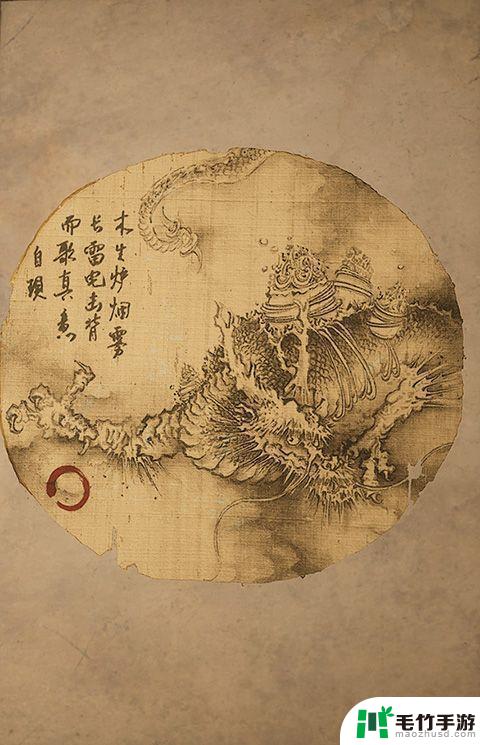 木生炉烟雾
长雷电击背
而歌真意
自现
毛竹手游
maozhusd.com